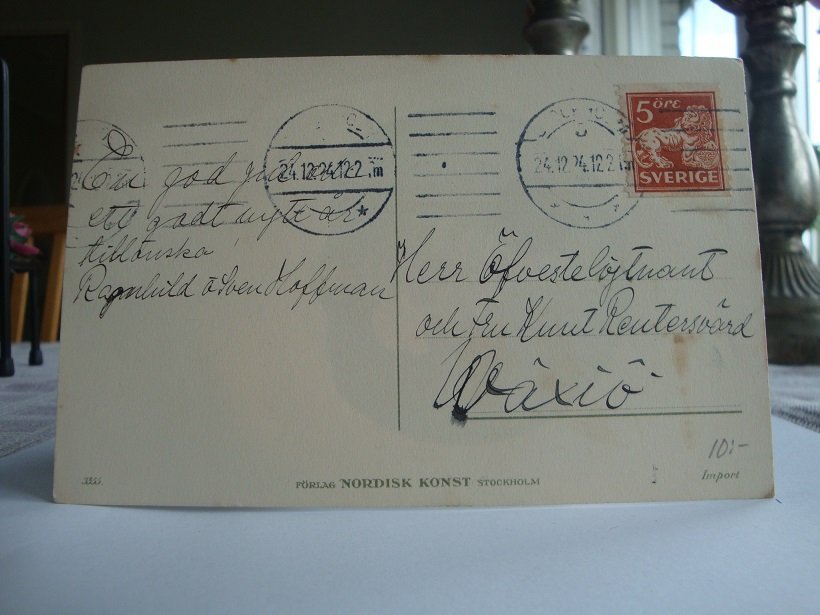 En god jul och
ett godt nytt år
tillönska
Ragnhild o Sven Hoffman
24.12.24.12-2.m
24.12.24.12-2.m
5 ÖRE
SVERIGE
Herr Öfverstelöjtnant
och Fru Knut Reutersvärd
Wäxiö
10:-
3255
FÖRLAG NORDISK KONST STOCKHOLM
Import